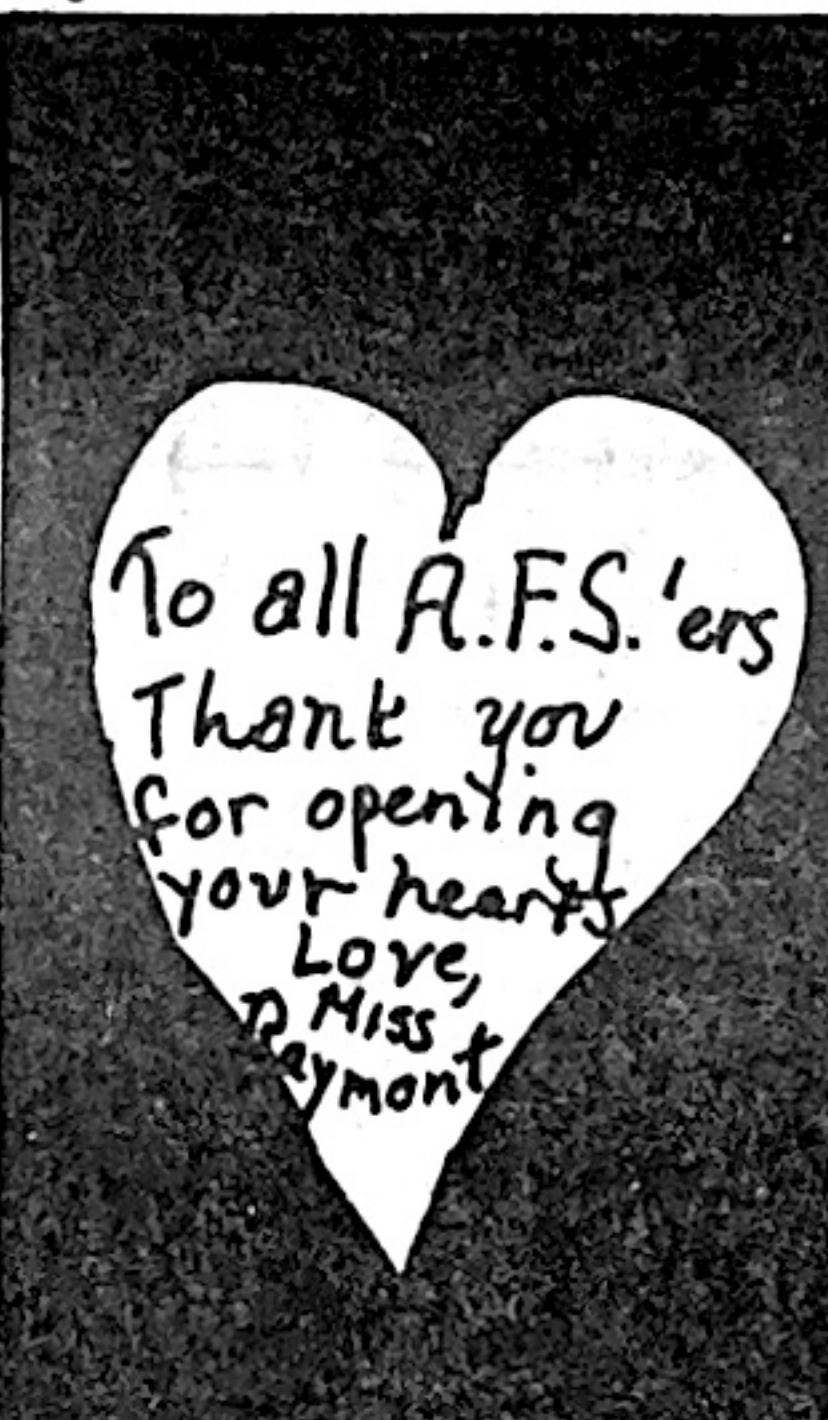 To all A.F.S.'ers
Thank you
for opening
your hearts
Love,
Miss
Raymont